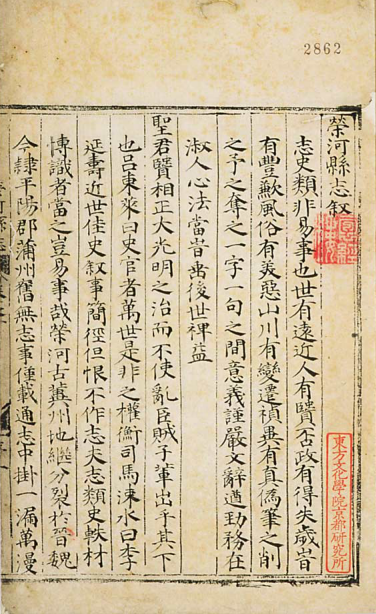 2862
榮河縣志叙
志史類非易事也世有遠近人有賢否政有得失歲旹
有豐歉風俗有美惡山川有變遷禎異有真偽筆之削
之予之奪之一字一句之間意義謹嚴文辭遒勁務在
淑人心法當旹後世裨益
聖君賢相正大光明之治而不使亂臣賊子軰出乎其下
也吕東萊曰史官者萬世是非之權衡司馬涑水曰李
延壽近世佳史叙事簡徑但恨不作志夫志類史軼材
愽識者當之豈易事哉榮河古冀州地繼分裂於晉魏
今隸平陽郡蒲州舊無志事僅載通志中掛一漏萬漫
東方文化學院京都研究所